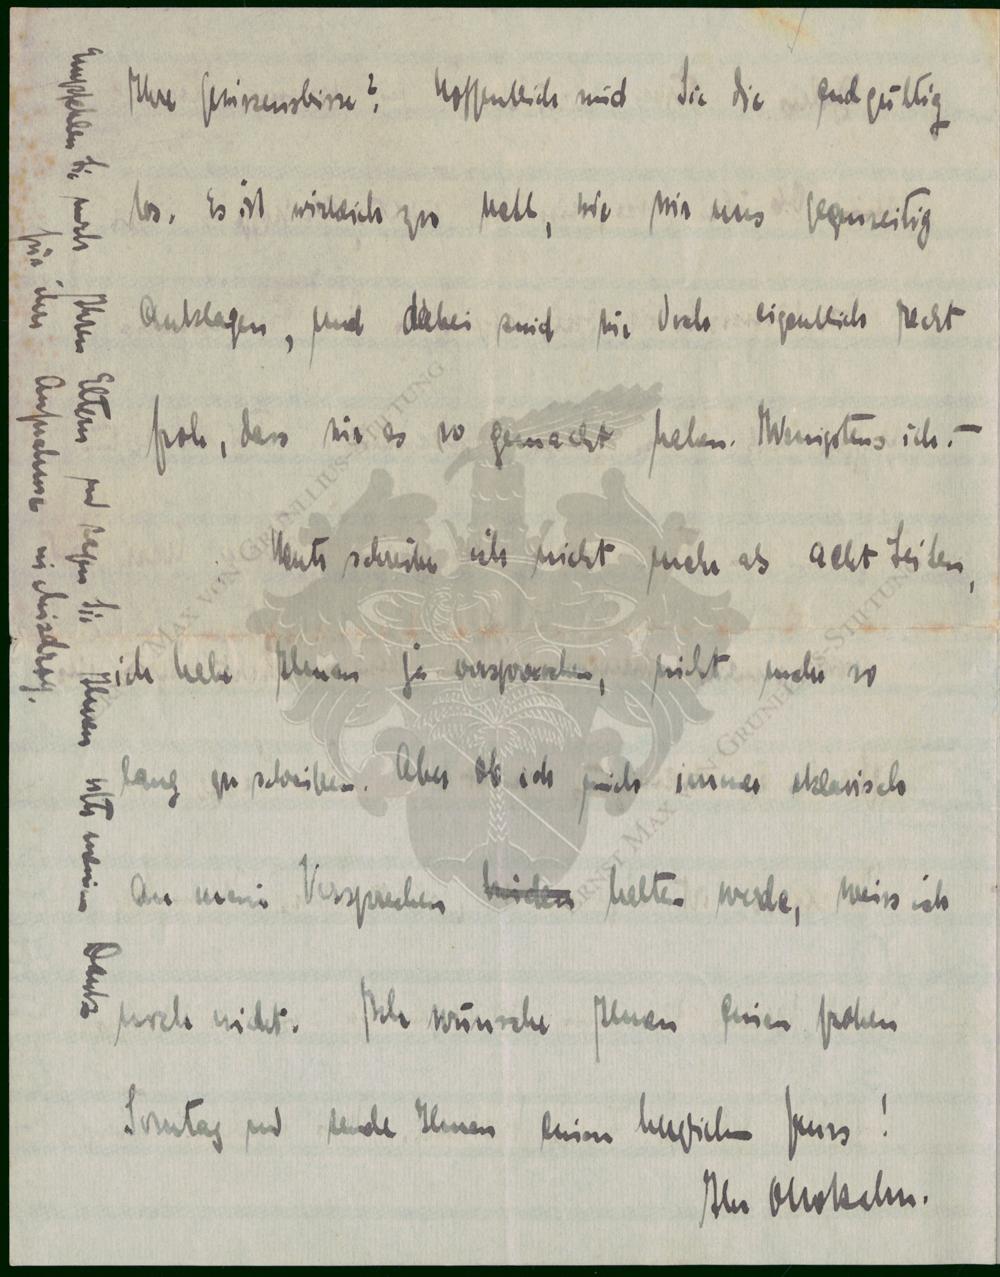 Ihre Gewissensbisse? Hoffentlich sind Sie die endgültig
los. Es ist wirklich zu nett, wie wir uns gegenseitig
anklagen, und dabei sind wir doch eigentlich recht
froh, dass wir es so gemacht haben. Wenigstens ich.—
Heute schreibe ich nicht mehr als acht Seiten,
ich habe Ihnen ja versprochen, nicht mehr so
lang zu schreiben. Aber ob ich mich immer sklavisch
an mein Versprechen halten werde, weiss ich
noch nicht. Ich wünsche Ihnen einen frohen
Sonntag und sende Ihnen einen herzlichen Gruss!
Ihr Otto Kahn.
Empfehlen Sie mich Ihren Eltern und sagen Sie Ihnen bitte meinen Dank
für ihre Aufnahme am Dienstag.
MAX VON GRUNELIUS-STIFTUNG
ERNST MAX VON GRUNELIUS-STIFTUNG